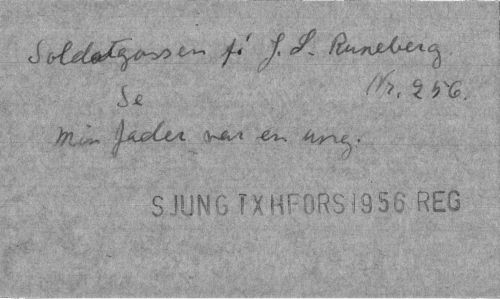 Soldatgossen f. J. L. Runeberg.
Nr. 256.
Se
Min fader var en ung.
SJUNG TXHFORS1956 REG